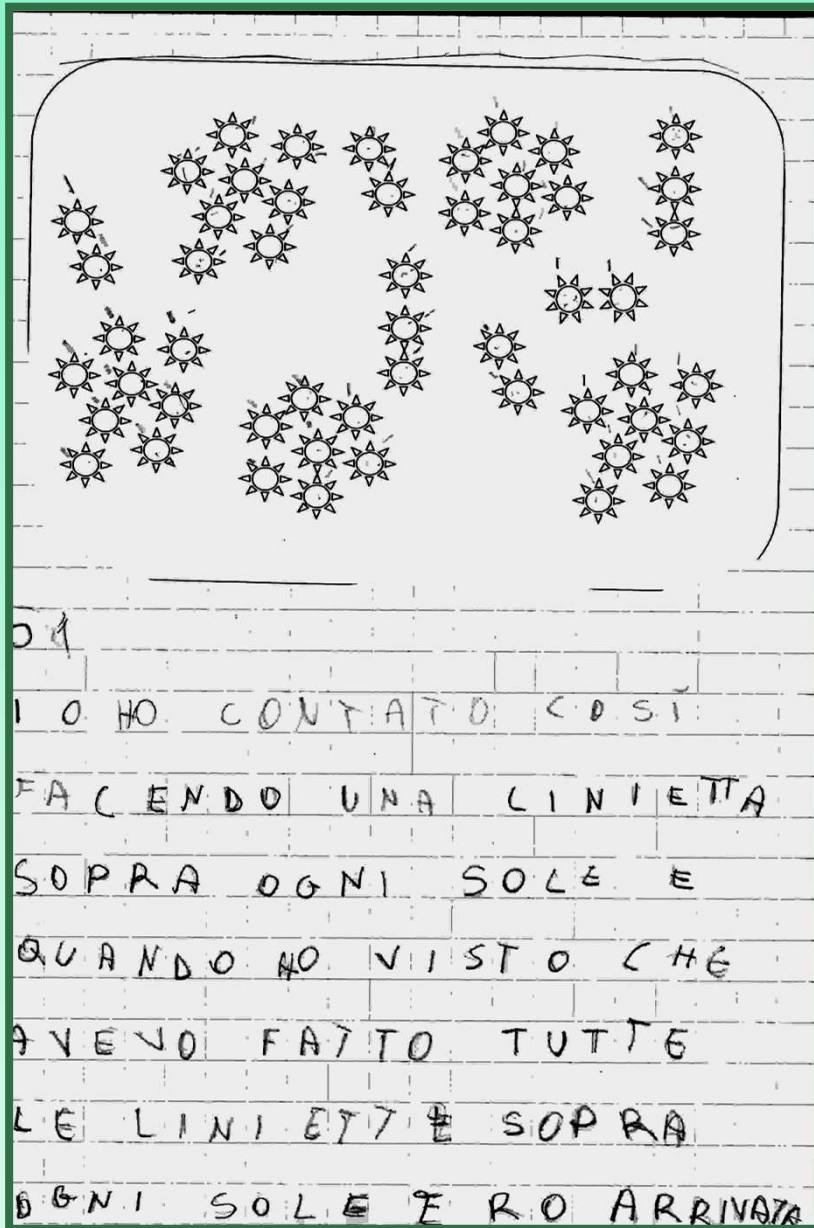 01
IO HO CONTATO COSÌ
FACENDO UNA LINIETTA
SOPRA OGNI SOLE E
QUANDO HO VISTO CHE
AVEVO FATTO TUTTE
LE LINIETTE SOPRA
OGNI SOLE ERO ARRIVATA